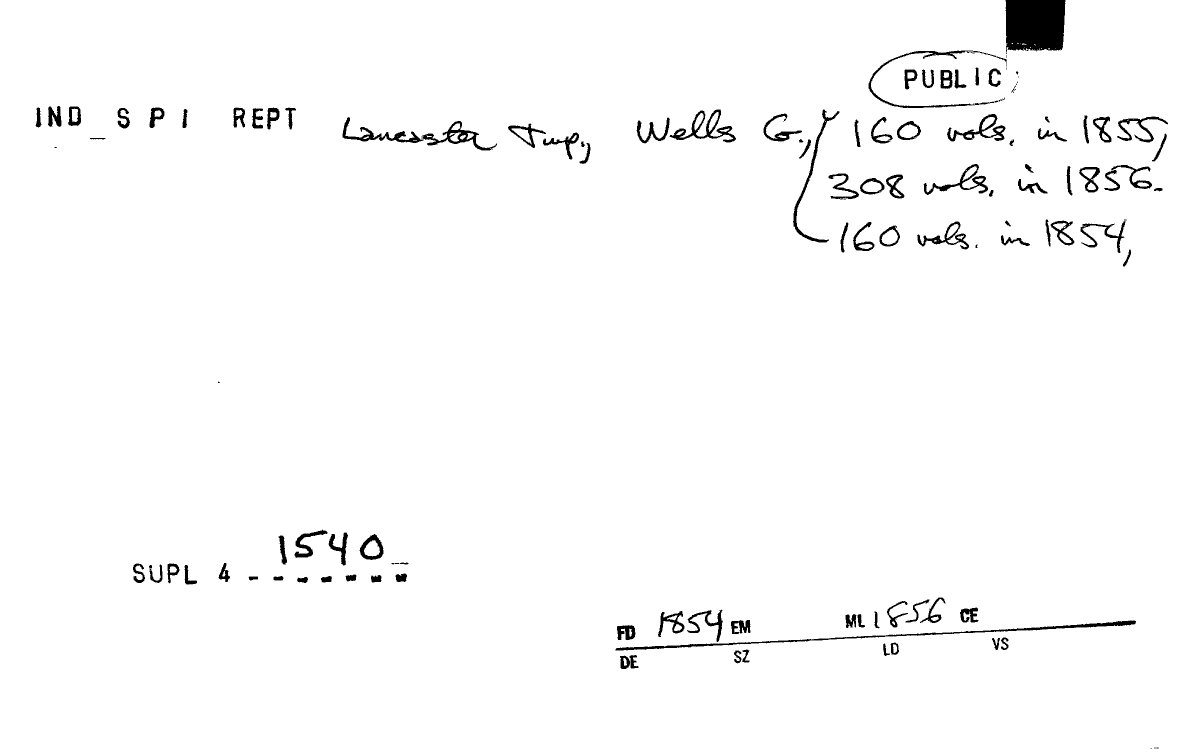 PUBLIC
IND S P I REPT Lancaster Twp., Wells Co., 160 vols. in 1855,
308 vols. in 1856.
160 vols. in 1854,
1540
SUPL 4 - - - - - - -
FD 1854 EM ML 1856 CE
DE SZ LD VS